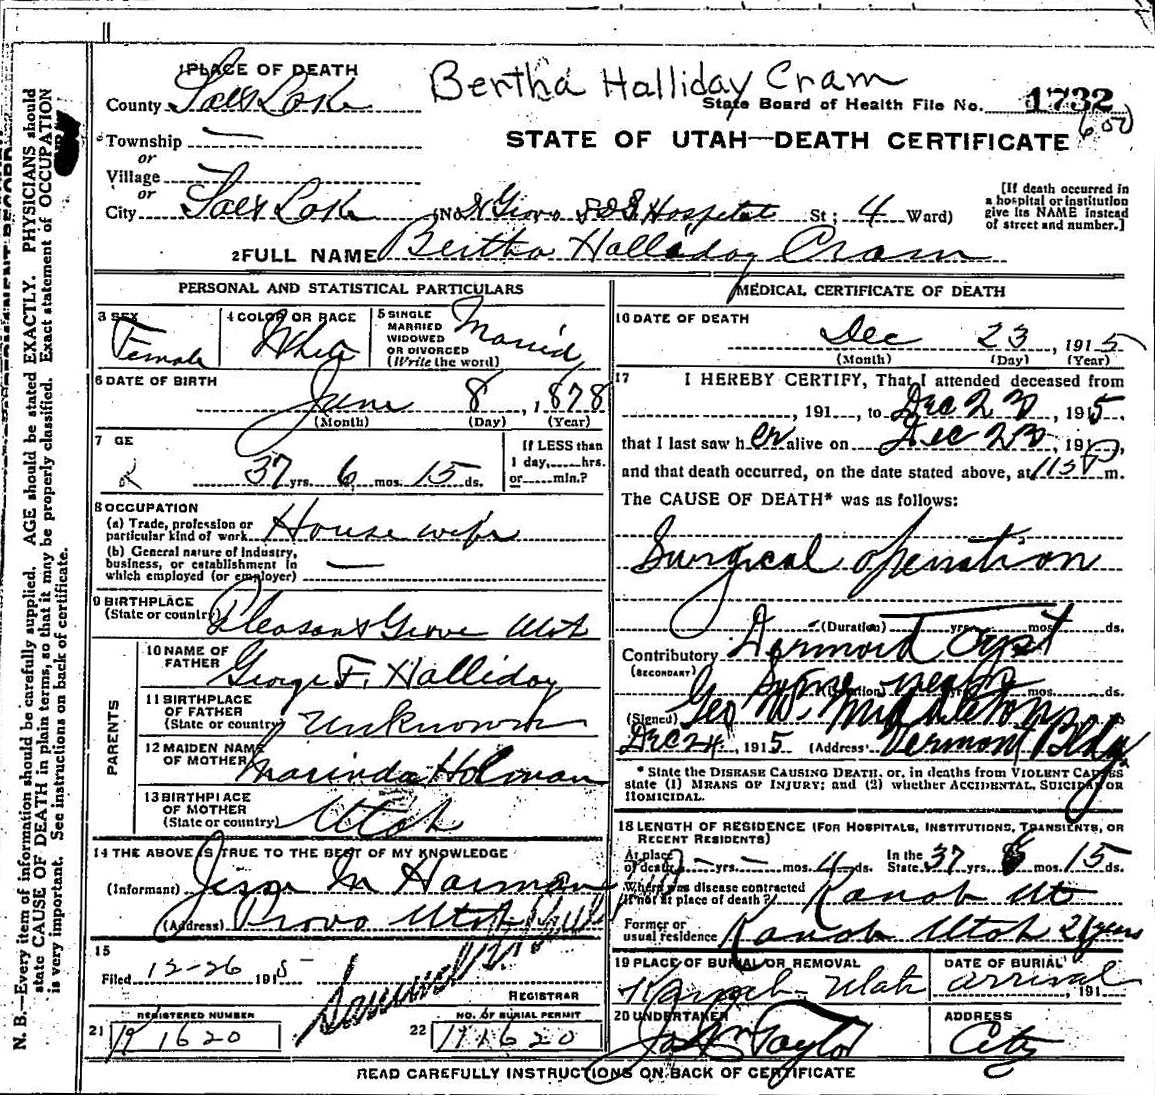 Bertha Halliday Cram
1 PLACE OF DEATH
County Salt Lake
State Board of Health File No. 1732
600
Township —
STATE OF UTAH—DEATH CERTIFICATE
or
Village
or
City Salt Lake (No. L D S Hospital St; 4 Ward)
[If death occurred in
a hospital or institution
give its NAME instead
of street and number.]
2 FULL NAME Bertha Halliday Cram
PERSONAL AND STATISTICAL PARTICULARS
3 SEX
Female
4 COLOR OR RACE
White
5 SINGLE
MARRIED
WIDOWED
OR DIVORCED
(Write the word)
Married
6 DATE OF BIRTH
June 8, 1878
(Month) (Day) (Year)
7 GE
37 yrs. 6 mos. 15 ds.
If LESS than
1 day,......hrs.
or......min.?
8 OCCUPATION
(a) Trade, profession or
particular kind of work House wife
(b) General nature of industry,
business, or establishment in
which employed (or employer) —
9 BIRTHPLACE
(State or country) Pleasant Grove Utah
PARENTS
10 NAME OF
FATHER George F. Halliday
11 BIRTHPLACE
OF FATHER
(State or country) Unknown
12 MAIDEN NAME
OF MOTHER Marinda Holman
13 BIRTHPLACE
OF MOTHER
(State or country) Utah
14 THE ABOVE IS TRUE TO THE BEST OF MY KNOWLEDGE
(Informant) Jesse M Harmon
(Address) Provo Utah
15
Filed 12-26 1915
REGISTRAR
REGISTERED NUMBER
21 1620
NO. OF BURIAL PERMIT
22 1620
MEDICAL CERTIFICATE OF DEATH
16 DATE OF DEATH
Dec 23, 1915
(Month) (Day) (Year)
17 I HEREBY CERTIFY, That I attended deceased from
, 191..., to Dec 23, 1915,
that I last saw her alive on Dec 23, 191
and that death occurred, on the date stated above, at 115 P m.
The CAUSE OF DEATH* was as follows:
Surgical operation
(Duration) yrs. mos. ds.
Contributory Dermoid Cyst
(SECONDARY)
Some years
(Duration) yrs. mos. ds.
(Signed) Geo W. Middleton
Dec 24, 1915 (Address) Vermont Bldg
* State the DISEASE CAUSING DEATH, or, in deaths from VIOLENT CAUSES
state (1) MEANS OF INJURY; and (2) whether ACCIDENTAL, SUICIDAL OR
HOMICIDAL.
18 LENGTH OF RESIDENCE (FOR HOSPITALS, INSTITUTIONS, TRANSIENTS, OR
RECENT RESIDENTS)
At place
of death — yrs. — mos. 4 ds.
In the
State 37 yrs. 6 mos. 15 ds.
Where was disease contracted
if not at place of death? Kanab Ut
Former or
usual residence Kanab Utah 21 years
19 PLACE OF BURIAL OR REMOVAL
Kanab Utah
DATE OF BURIAL
arrival, 191
20 UNDERTAKER
Jos Wm Taylor
ADDRESS
City
READ CAREFULLY INSTRUCTIONS ON BACK OF CERTIFICATE
N. B.—Every item of information should be carefully supplied. AGE should be stated EXACTLY. PHYSICIANS should
state CAUSE OF DEATH in plain terms, so that it may be properly classified. Exact statement of OCCUPATION
is very important. See instructions on back of certificate.